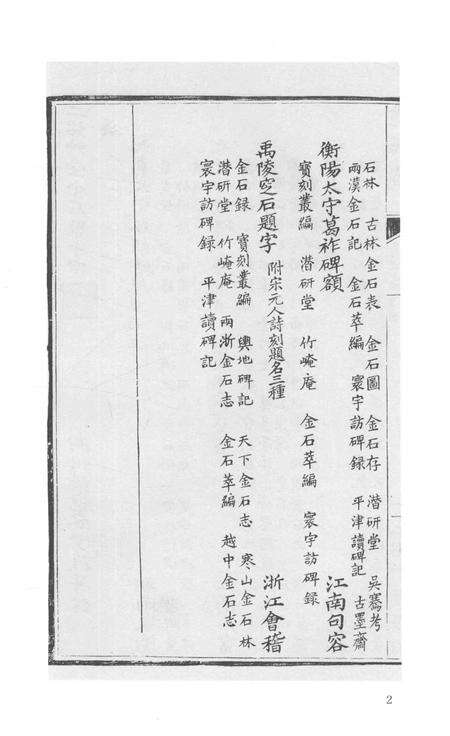 石林　古林金石表　金石圖　金石存　潛研堂　吳騫考
兩漢金石記　金石萃編　寰宇訪碑錄　平津讀碑記　古墨齋
衡陽太守葛祚碑額　江南句容
寶刻叢編　潛研堂　竹崦庵　金石萃編　寰宇訪碑錄
禹陵窆石題字　附宋元人詩刻題名三種　浙江會稽
金石錄　寶刻叢編　輿地碑記　天下金石志　寒山金石林
潛研堂　竹崦庵　兩浙金石志　金石萃編　越中金石志
寰宇訪碑錄　平津讀碑記
2